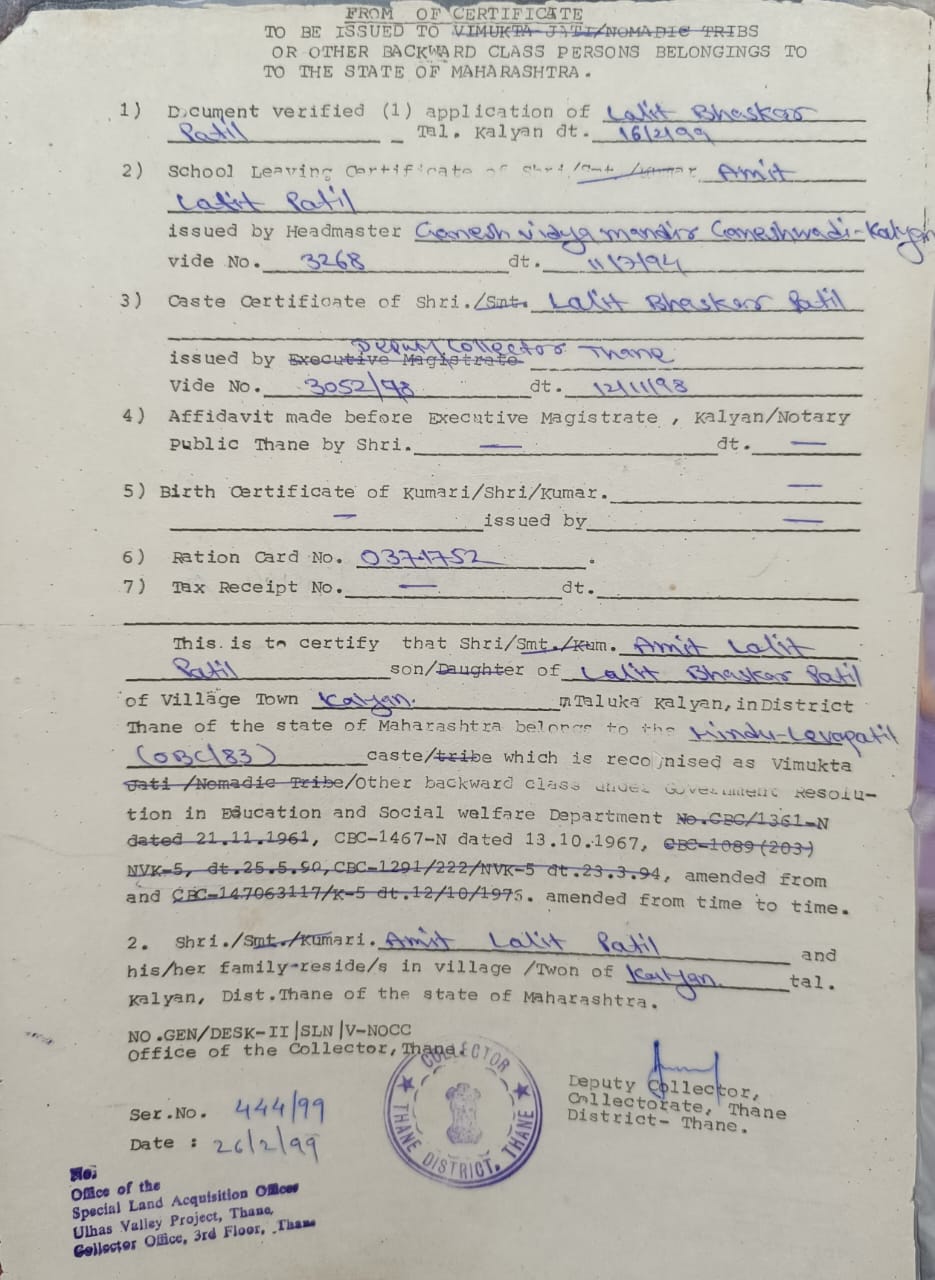 FROM OF CERTIFICATE
TO BE ISSUED TO VIMUKTA-JATI/NOMADIC TRIBS
OR OTHER BACKWARD CLASS PERSONS BELONGINGS TO
TO THE STATE OF MAHARASHTRA.
1) Document verified (1) application of Lalit Bhaskar
Patil Tal. Kalyan dt. 16/2/99
2) School Leaving Certificate of Shri/Smt./Kumar. Amit
Lalit Patil
issued by Headmaster Ganesh vidya mandir Ganeshwadi-Kalyan
vide No. 3268 dt. 11/7/94
3) Caste Certificate of Shri./Smt. Lalit Bhaskar Patil
Deputy Collector Thane
issued by Executive Magistrate
Vide No. 3052/98 dt. 12/11/98
4) Affidavit made before Executive Magistrate , Kalyan/Notary
Public Thane by Shri. — dt. —
5) Birth Certificate of Kumari/Shri/Kumar. —
— issued by —
6) Ration Card No. 0371752 .
7) Tax Receipt No. — dt.
This is to certify that Shri/Smt./Kum. Amit Lalit
Patil son/Daughter of Lalit Bhaskar Patil
of Village Town Kalyan. in Taluka Kalyan, in District
Thane of the state of Maharashtra belongs to the Hindu-Levapatil
(OBC/83) caste/tribe which is recognised as Vimukta
Jati /Nomadic Tribe/Other backward class under Government Resolu-
tion in Education and Social welfare Department No.CBC/1361-N
dated 21.11.1961, CBC-1467-N dated 13.10.1967, CBC-1089(203)
NVK-5, dt.25.5.90,CBC-1291/222/NVK-5 dt.23.3.94, amended from
and CBC-147063117/K-5 dt.12/10/1975. amended from time to time.
2. Shri./Smt./Kumari. Amit Lalit Patil and
his/her family-reside/s in village /Twon of Kalyan. tal.
Kalyan, Dist.Thane of the state of Maharashtra.
NO.GEN/DESK-II|SLN|V-NOCC
Office of the Collector, Thane.
COLLECTOR
THANE DISTRICT, THANE
Deputy Collector,
Collectorate, Thane
District- Thane.
Ser.No. 444/99
Date : 26/2/99
No.
Office of the
Special Land Acquisition Officer
Ulhas Valley Project, Thane,
Collector Office, 3rd Floor, Thane